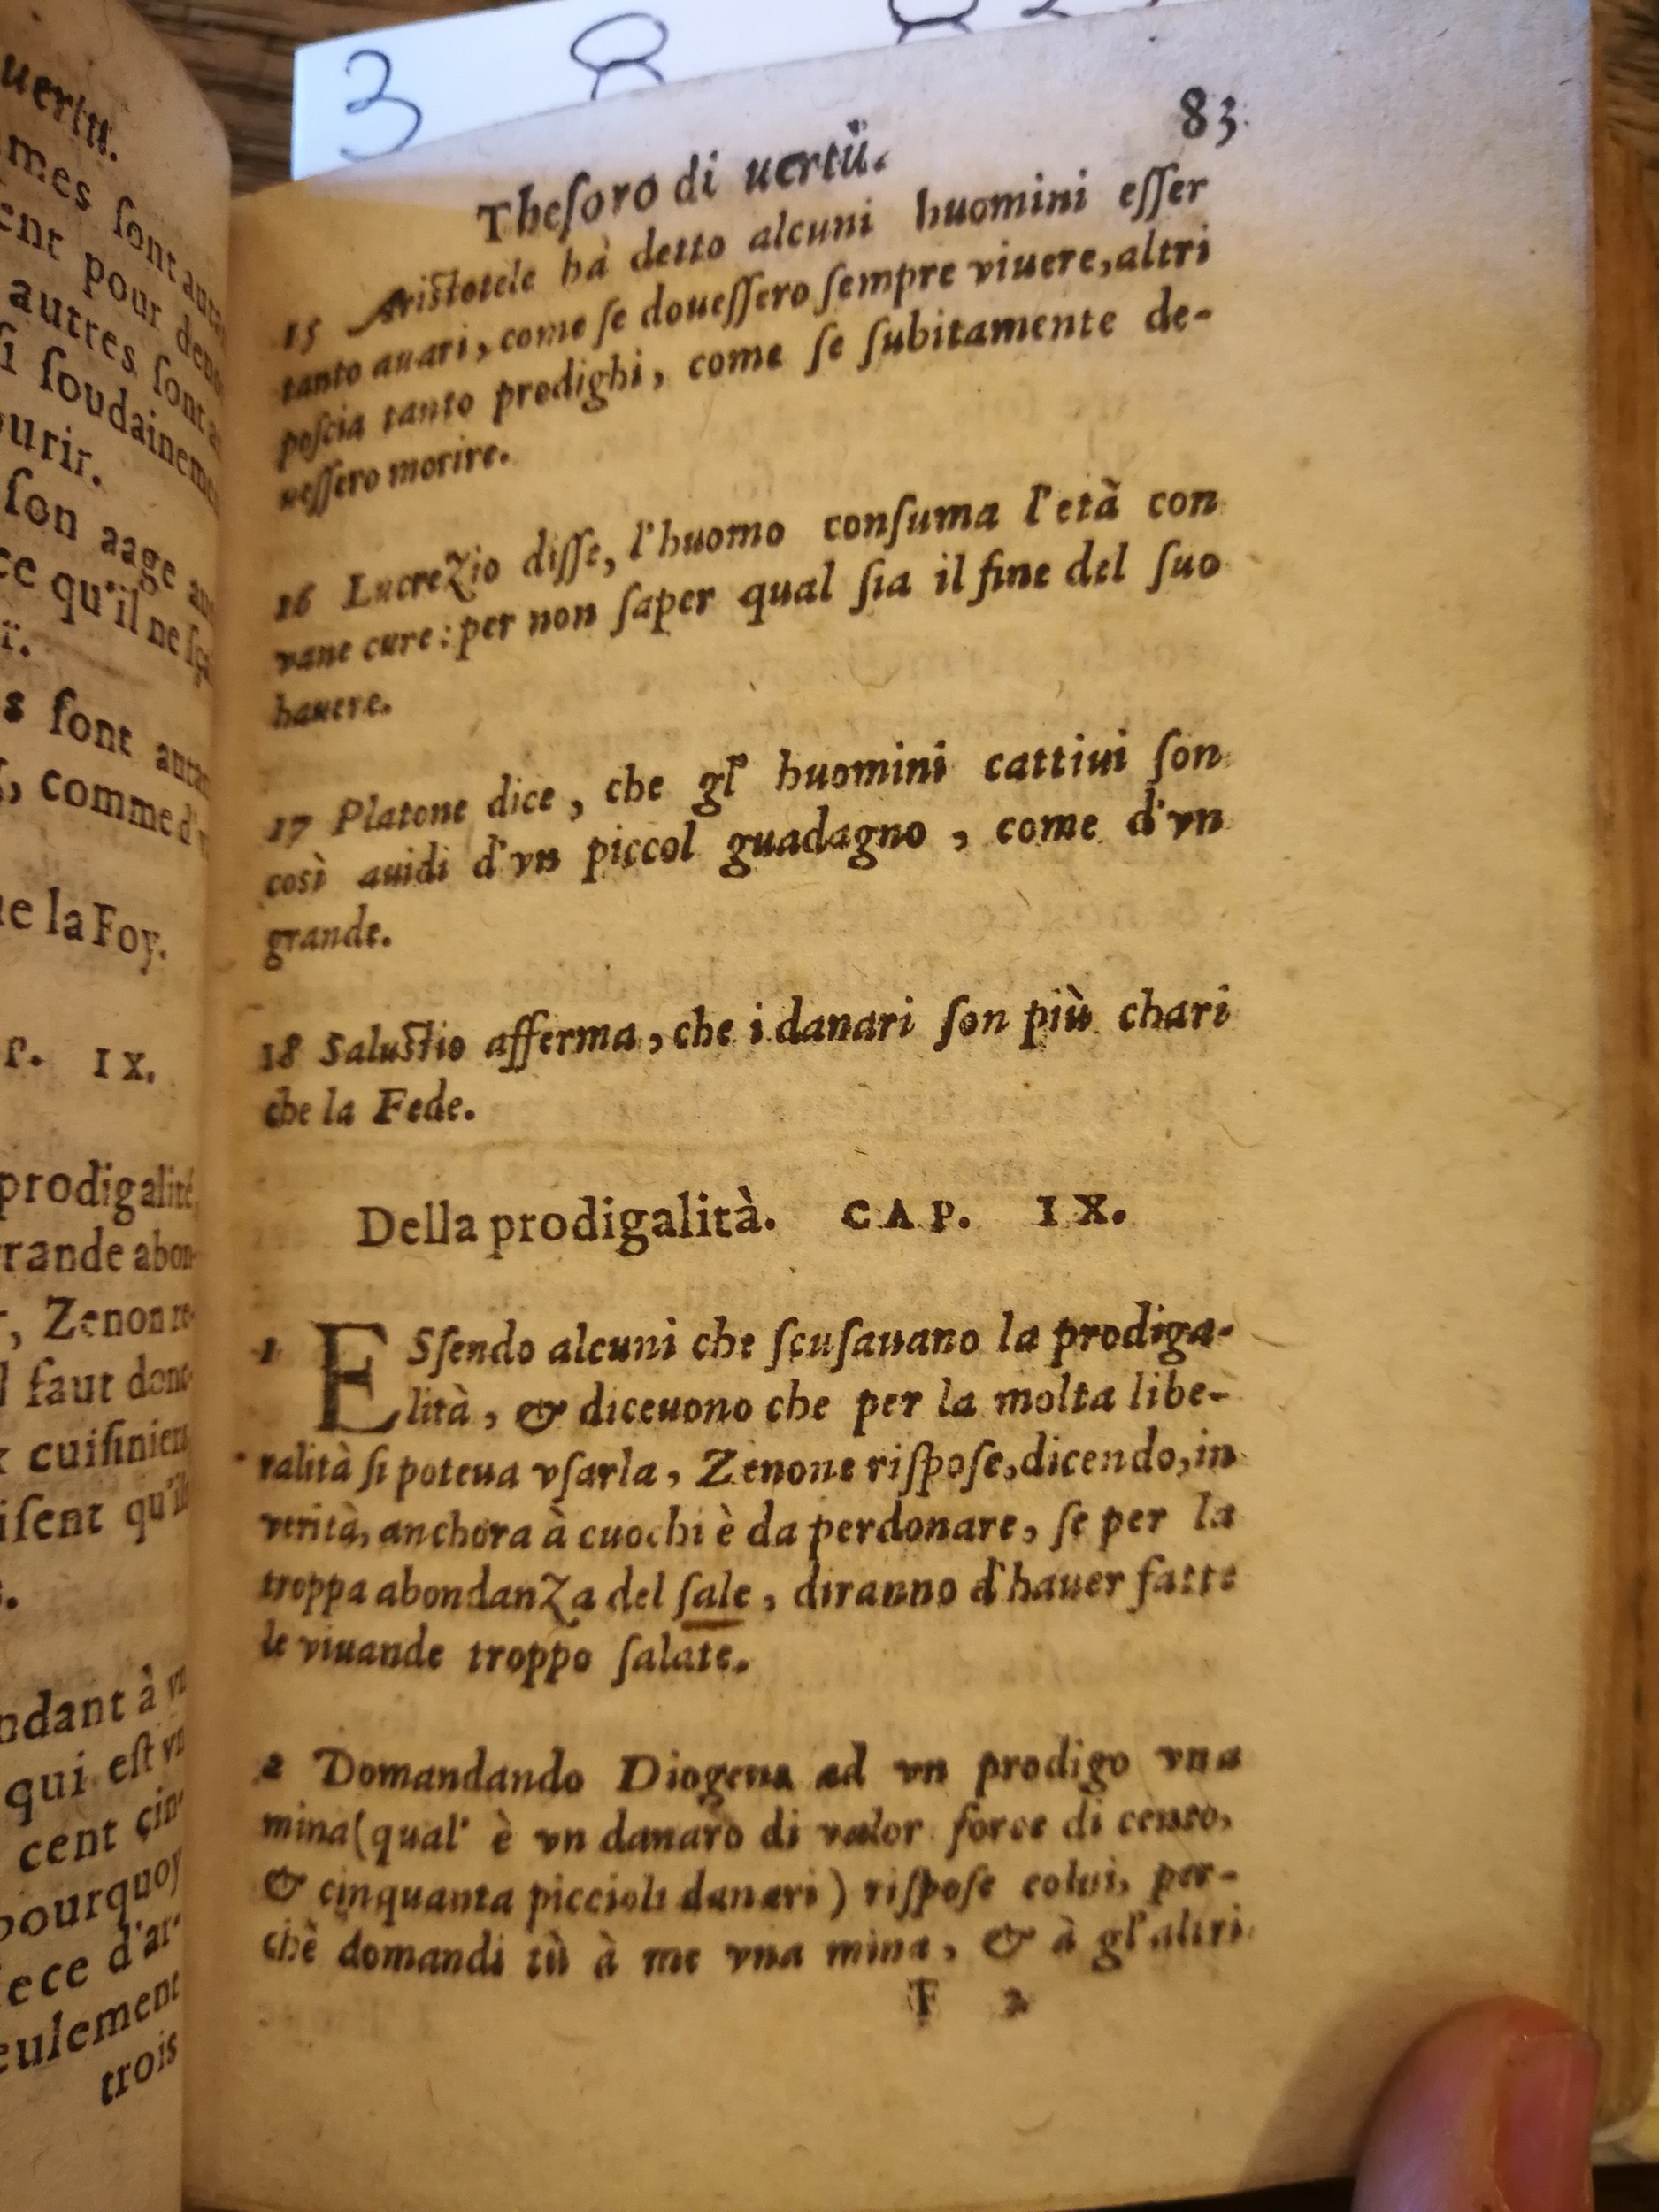 3 8
uertu.
mes sont auta
ent pour deuo
autres sont a
si soudaineme
ourir.
son aage
ce qu'il ne
r.
s sont auta
, comme d'v
ue la Foy.
P. IX.
prodigalité
rande abon-
, Zenon re-
l faut donc
x cuisiniers
isent qu'il
ndant à vn
qui est vn
cent cin-
pourquoy
iece d'ar-
eulement
trois
83
Thesoro di uertù.
15 Aristotele hà detto alcuni huomini esser
tanto auari, come se douessero sempre viuere, altri
poscia tanto prodighi, come se subitamente de-
uessero morire.
16 Lucrezio disse, l'huomo consuma l'età con
vane cure: per non saper qual sia il fine del suo
hauere.
17 Platone dice, che gl' huomini cattiui son
così auidi d'vn piccol guadagno, come d'vn
grande.
18 Salustio afferma, che i danari son più chari
che la Fede.
Della prodigalità. CAP. IX.
1 ESsendo alcuni che scusauano la prodiga-
lità, & diceuono che per la molta libe-
ralità si poteua vsarla, Zenone rispose, dicendo, in
verità, anchora à cuochi è da perdonare, se per la
troppa abondanza del sale, diranno d'hauer fatte
le viuande troppo salate.
2 Domandando Diogena ad vn prodigo vna
mina (qual' è vn danaro di valor forse di cento,
& cinquanta piccioli danari) rispose colui, per-
chè domandi tù à me vna mina, & à gl'altri
F 2